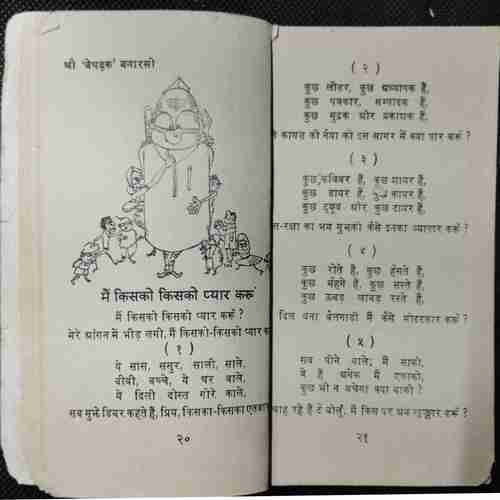 श्री 'बेधड़क' बनारसी
मैं किसको किसको प्यार करूं
मैं किसको किसको प्यार करूं ?
मेरे आंगन में भीड़ लगी, मैं किसको-किसको प्यार
( १ )
ये सास, ससुर, साली, साले,
बीवी, बच्चे, ये घर वाले,
ये दिली दोस्त गोरे काले,
सब मुझे डियर कहते हैं, प्रिय, किसका-किसका
२०
( २ )
कुछ लीडर, कुछ अध्यापक हैं,
कुछ पत्रकार, सम्पादक हैं,
कुछ मुद्रक और प्रकाशक हैं,
कागज की नैया को इस सागर में क्या पार करूं ?
( ३ )
कुछ कविवर हैं, कुछ शायर हैं,
कुछ डायर हैं, कुछ कायर हैं,
कुछ ट्यूब और कुछ टायर हैं,
का भय मुझको कैसे इनका व्यापार करूं ?
( ४ )
कुछ रोते हैं, कुछ हँसते हैं,
कुछ मँहगे हैं, कुछ सस्ते हैं,
कुछ ऊबड़ खाबड़ रस्ते हैं,
दिल बना बैलगाड़ी मैं कैसे मोटरकार करूं ?
( ५ )
सब पीने वाले; मैं साकी,
ये हैं अनेक मैं एकाकी,
कुछ भी न बचेगा क्या बाकी ?
रहे हैं ये बोलूँ, मैं किस पर करूं ?
२१